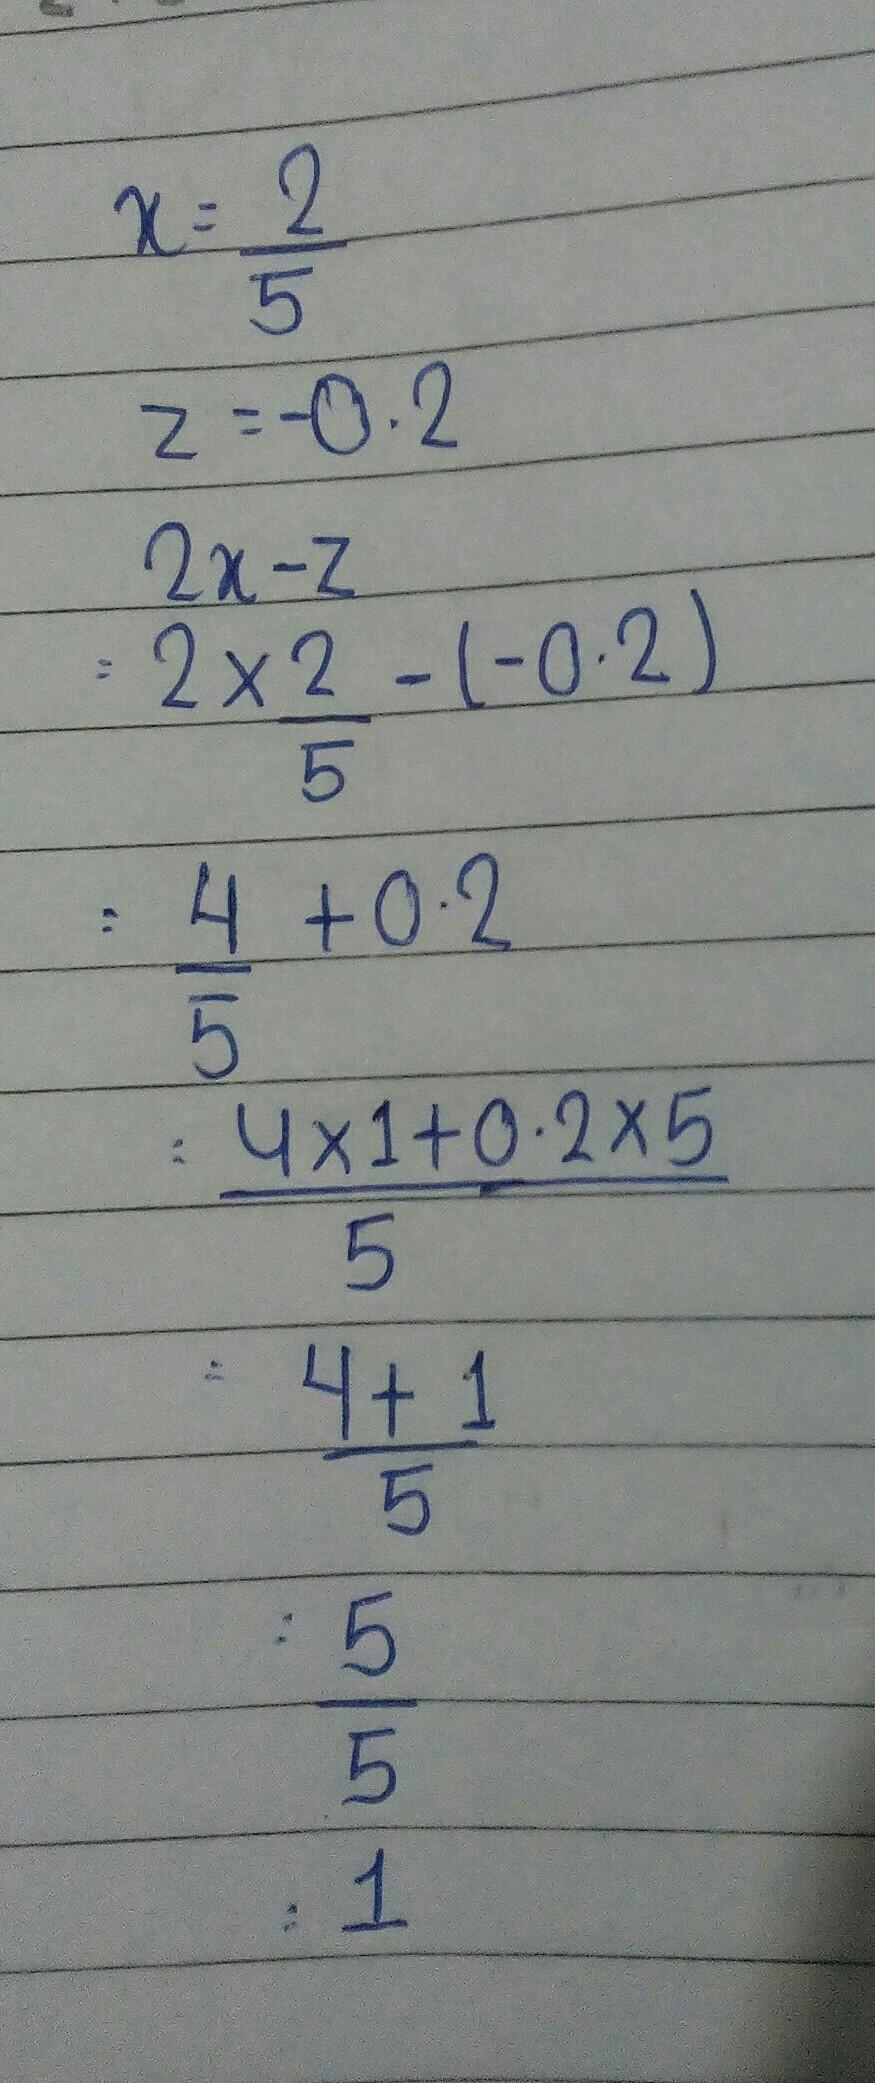 x = 2/5
z = -0.2
2x - z
= 2 × 2/5 - (-0.2)
= 4/5 + 0.2
= (4×1+0.2×5)/5
= (4+1)/5
= 5/5
= 1